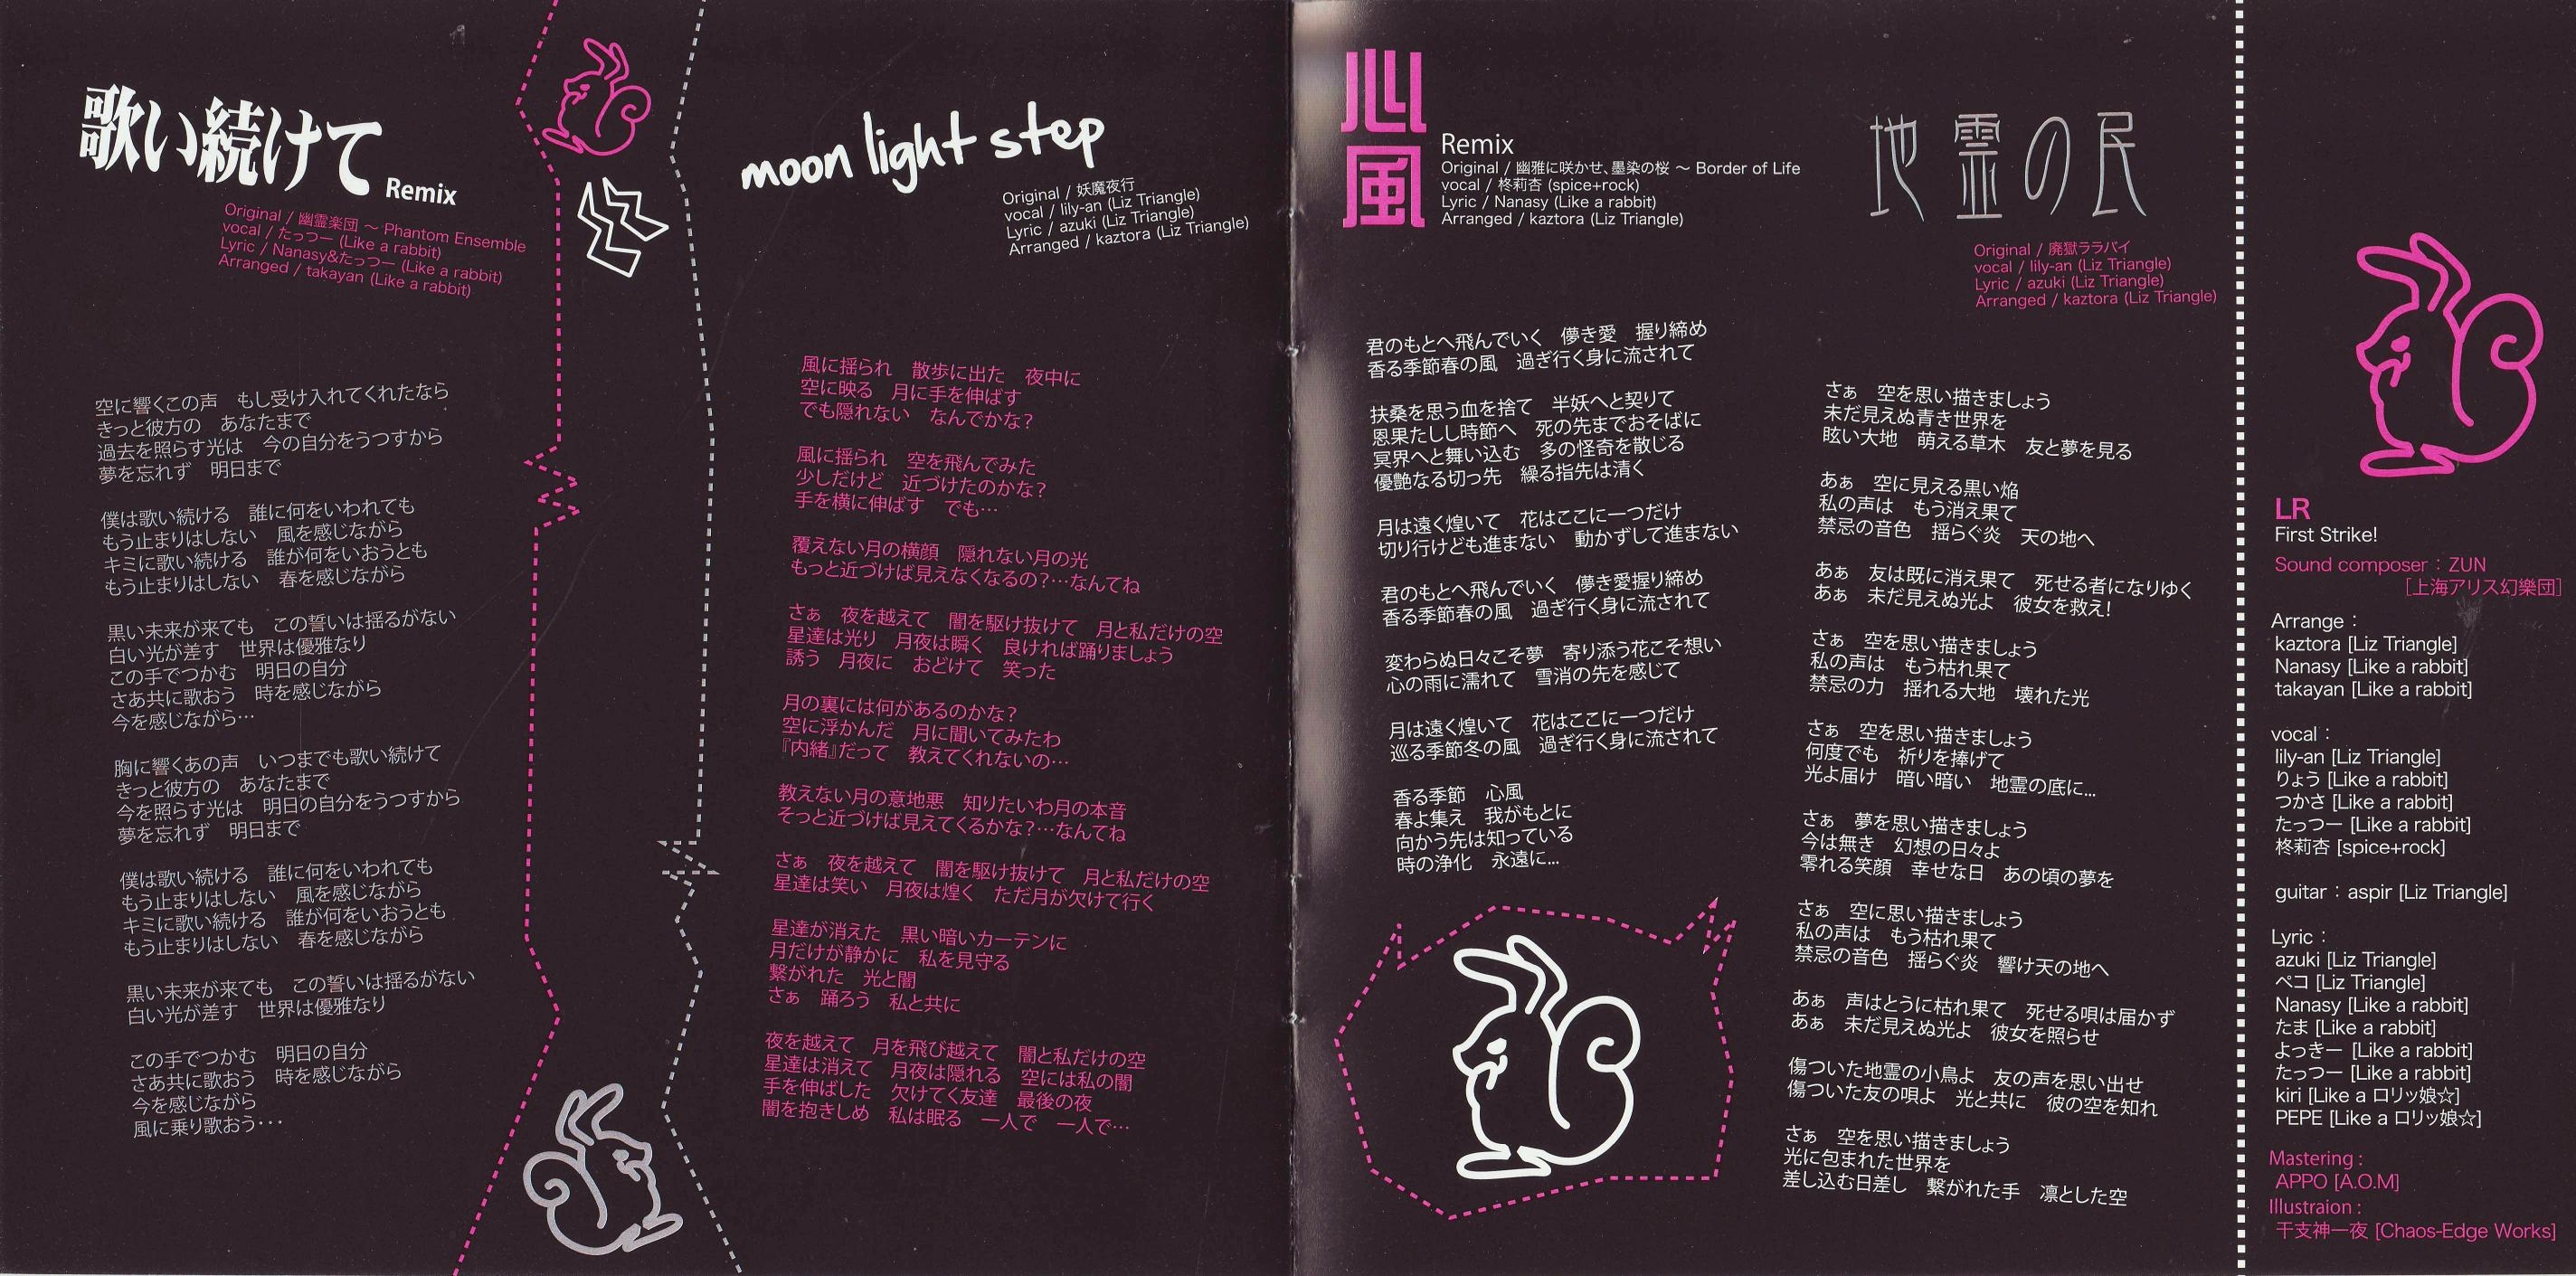 歌い続けて Remix
Original / 幽霊楽団 ～ Phantom Ensemble
vocal / たっつー (Like a rabbit)
Lyric / Nanasy&たっつー (Like a rabbit)
Arranged / takayan (Like a rabbit)
空に響くこの声　もし受け入れてくれたなら
きっと彼方の　あなたまで
過去を照らす光は　今の自分をうつすから
夢を忘れず　明日まで
僕は歌い続ける　誰に何をいわれても
もう止まりはしない　風を感じながら
キミに歌い続ける　誰が何をいおうとも
もう止まりはしない　春を感じながら
黒い未来が来ても　この誓いは揺るがない
白い光が差す　世界は優雅なり
この手でつかむ　明日の自分
さあ共に歌おう　時を感じながら
今を感じながら…
胸に響くあの声　いつまでも歌い続けて
きっと彼方の　あなたまで
今を照らす光は　明日の自分をうつすから
夢を忘れず　明日まで
僕は歌い続ける　誰に何をいわれても
もう止まりはしない　風を感じながら
キミに歌い続ける　誰が何をいおうとも
もう止まりはしない　春を感じながら
黒い未来が来ても　この誓いは揺るがない
白い光が差す　世界は優雅なり
この手でつかむ　明日の自分
さあ共に歌おう　時を感じながら
今を感じながら
風に乗り歌おう･･･
moon light step
Original / 妖魔夜行
vocal / lily-an (Liz Triangle)
Lyric / azuki (Liz Triangle)
Arranged / kaztora (Liz Triangle)
風に揺られ　散歩に出た　夜中に
空に映る　月に手を伸ばす
でも隠れない　なんでかな？
風に揺られ　空を飛んでみた
少しだけど　近づけたのかな？
手を横に伸ばす　でも…
覆えない月の横顔　隠れない月の光
もっと近づけば見えなくなるの？…なんてね
さぁ　夜を越えて　闇を駆け抜けて　月と私だけの空
星達は光り　月夜は瞬く　良ければ踊りましょう
誘う　月夜に　おどけて　笑った
月の裏には何があるのかな？
空に浮かんだ　月に聞いてみたわ
『内緒』だって　教えてくれないの…
教えない月の意地悪　知りたいわ月の本音
そっと近づけば見えてくるかな？…なんてね
さぁ　夜を越えて　闇を駆け抜けて　月と私だけの空
星達は笑い　月夜は煌く　ただ月が欠けて行く
星達が消えた　黒い暗いカーテンに
月だけが静かに　私を見守る
繋がれた　光と闇
さぁ　踊ろう　私と共に
夜を越えて　月を飛び越えて　闇と私だけの空
星達は消えて　月夜は隠れる　空には私の闇
手を伸ばした　欠けてく友達　最後の夜
闇を抱きしめ　私は眠る　一人で　一人で…
心風
Remix
Original / 幽雅に咲かせ、墨染の桜 ～ Border of Life
vocal / 柊莉杏 (spice+rock)
Lyric / Nanasy (Like a rabbit)
Arranged / kaztora (Liz Triangle)
君のもとへ飛んでいく　儚き愛　握り締め
香る季節春の風　過ぎ行く身に流されて
扶桑を思う血を捨て　半妖へと契りて
恩果たしし時節へ　死の先までおそばに
冥界へと舞い込む　多の怪奇を散じる
優艶なる切っ先　繰る指先は清く
月は遠く煌いて　花はここに一つだけ
切り行けども進まない　動かずして進まない
君のもとへ飛んでいく　儚き愛握り締め
香る季節春の風　過ぎ行く身に流されて
変わらぬ日々こそ夢　寄り添う花こそ想い
心の雨に濡れて　雪消の先を感じて
月は遠く煌いて　花はここに一つだけ
巡る季節冬の風　過ぎ行く身に流されて
香る季節　心風
春よ集え　我がもとに
向かう先は知っている
時の浄化　永遠に...
地霊の民
Original / 廃獄ララバイ
vocal / lily-an (Liz Triangle)
Lyric / azuki (Liz Triangle)
Arranged / kaztora (Liz Triangle)
さぁ　空を思い描きましょう
未だ見えぬ青き世界を
眩い大地　萌える草木　友と夢を見る
あぁ　空に見える黒い焔
私の声は　もう消え果て
禁忌の音色　揺らぐ炎　天の地へ
あぁ　友は既に消え果て　死せる者になりゆく
あぁ　未だ見えぬ光よ　彼女を救え！
さぁ　空を思い描きましょう
私の声は　もう枯れ果て
禁忌の力　揺れる大地　壊れた光
さぁ　空を思い描きましょう
何度でも　祈りを捧げて
光よ届け　暗い暗い　地霊の底に...
さぁ　夢を思い描きましょう
今は無き　幻想の日々よ
零れる笑顔　幸せな日　あの頃の夢を
さぁ　空に思い描きましょう
私の声は　もう枯れ果て
禁忌の音色　揺らぐ炎　響け天の地へ
あぁ　声はとうに枯れ果て　死せる唄は届かず
あぁ　未だ見えぬ光よ　彼女を照らせ
傷ついた地霊の小鳥よ　友の声を思い出せ
傷ついた友の唄よ　光と共に　彼の空を知れ
さぁ　空を思い描きましょう
光に包まれた世界を
差し込む日差し　繋がれた手　凛とした空
LR
First Strike!
Sound composer：ZUN
［上海アリス幻樂団］
Arrange：
kaztora [Liz Triangle]
Nanasy [Like a rabbit]
takayan [Like a rabbit]
vocal：
lily-an [Liz Triangle]
りょう [Like a rabbit]
つかさ [Like a rabbit]
たっつー [Like a rabbit]
柊莉杏 [spice+rock]
guitar：aspir [Liz Triangle]
Lyric：
azuki [Liz Triangle]
ペコ [Liz Triangle]
Nanasy [Like a rabbit]
たま [Like a rabbit]
よっきー [Like a rabbit]
たっつー [Like a rabbit]
kiri [Like a ロリッ娘☆]
PEPE [Like a ロリッ娘☆]
Mastering：
APPO [A.O.M]
Illustraion：
干支神一夜 [Chaos-Edge Works]